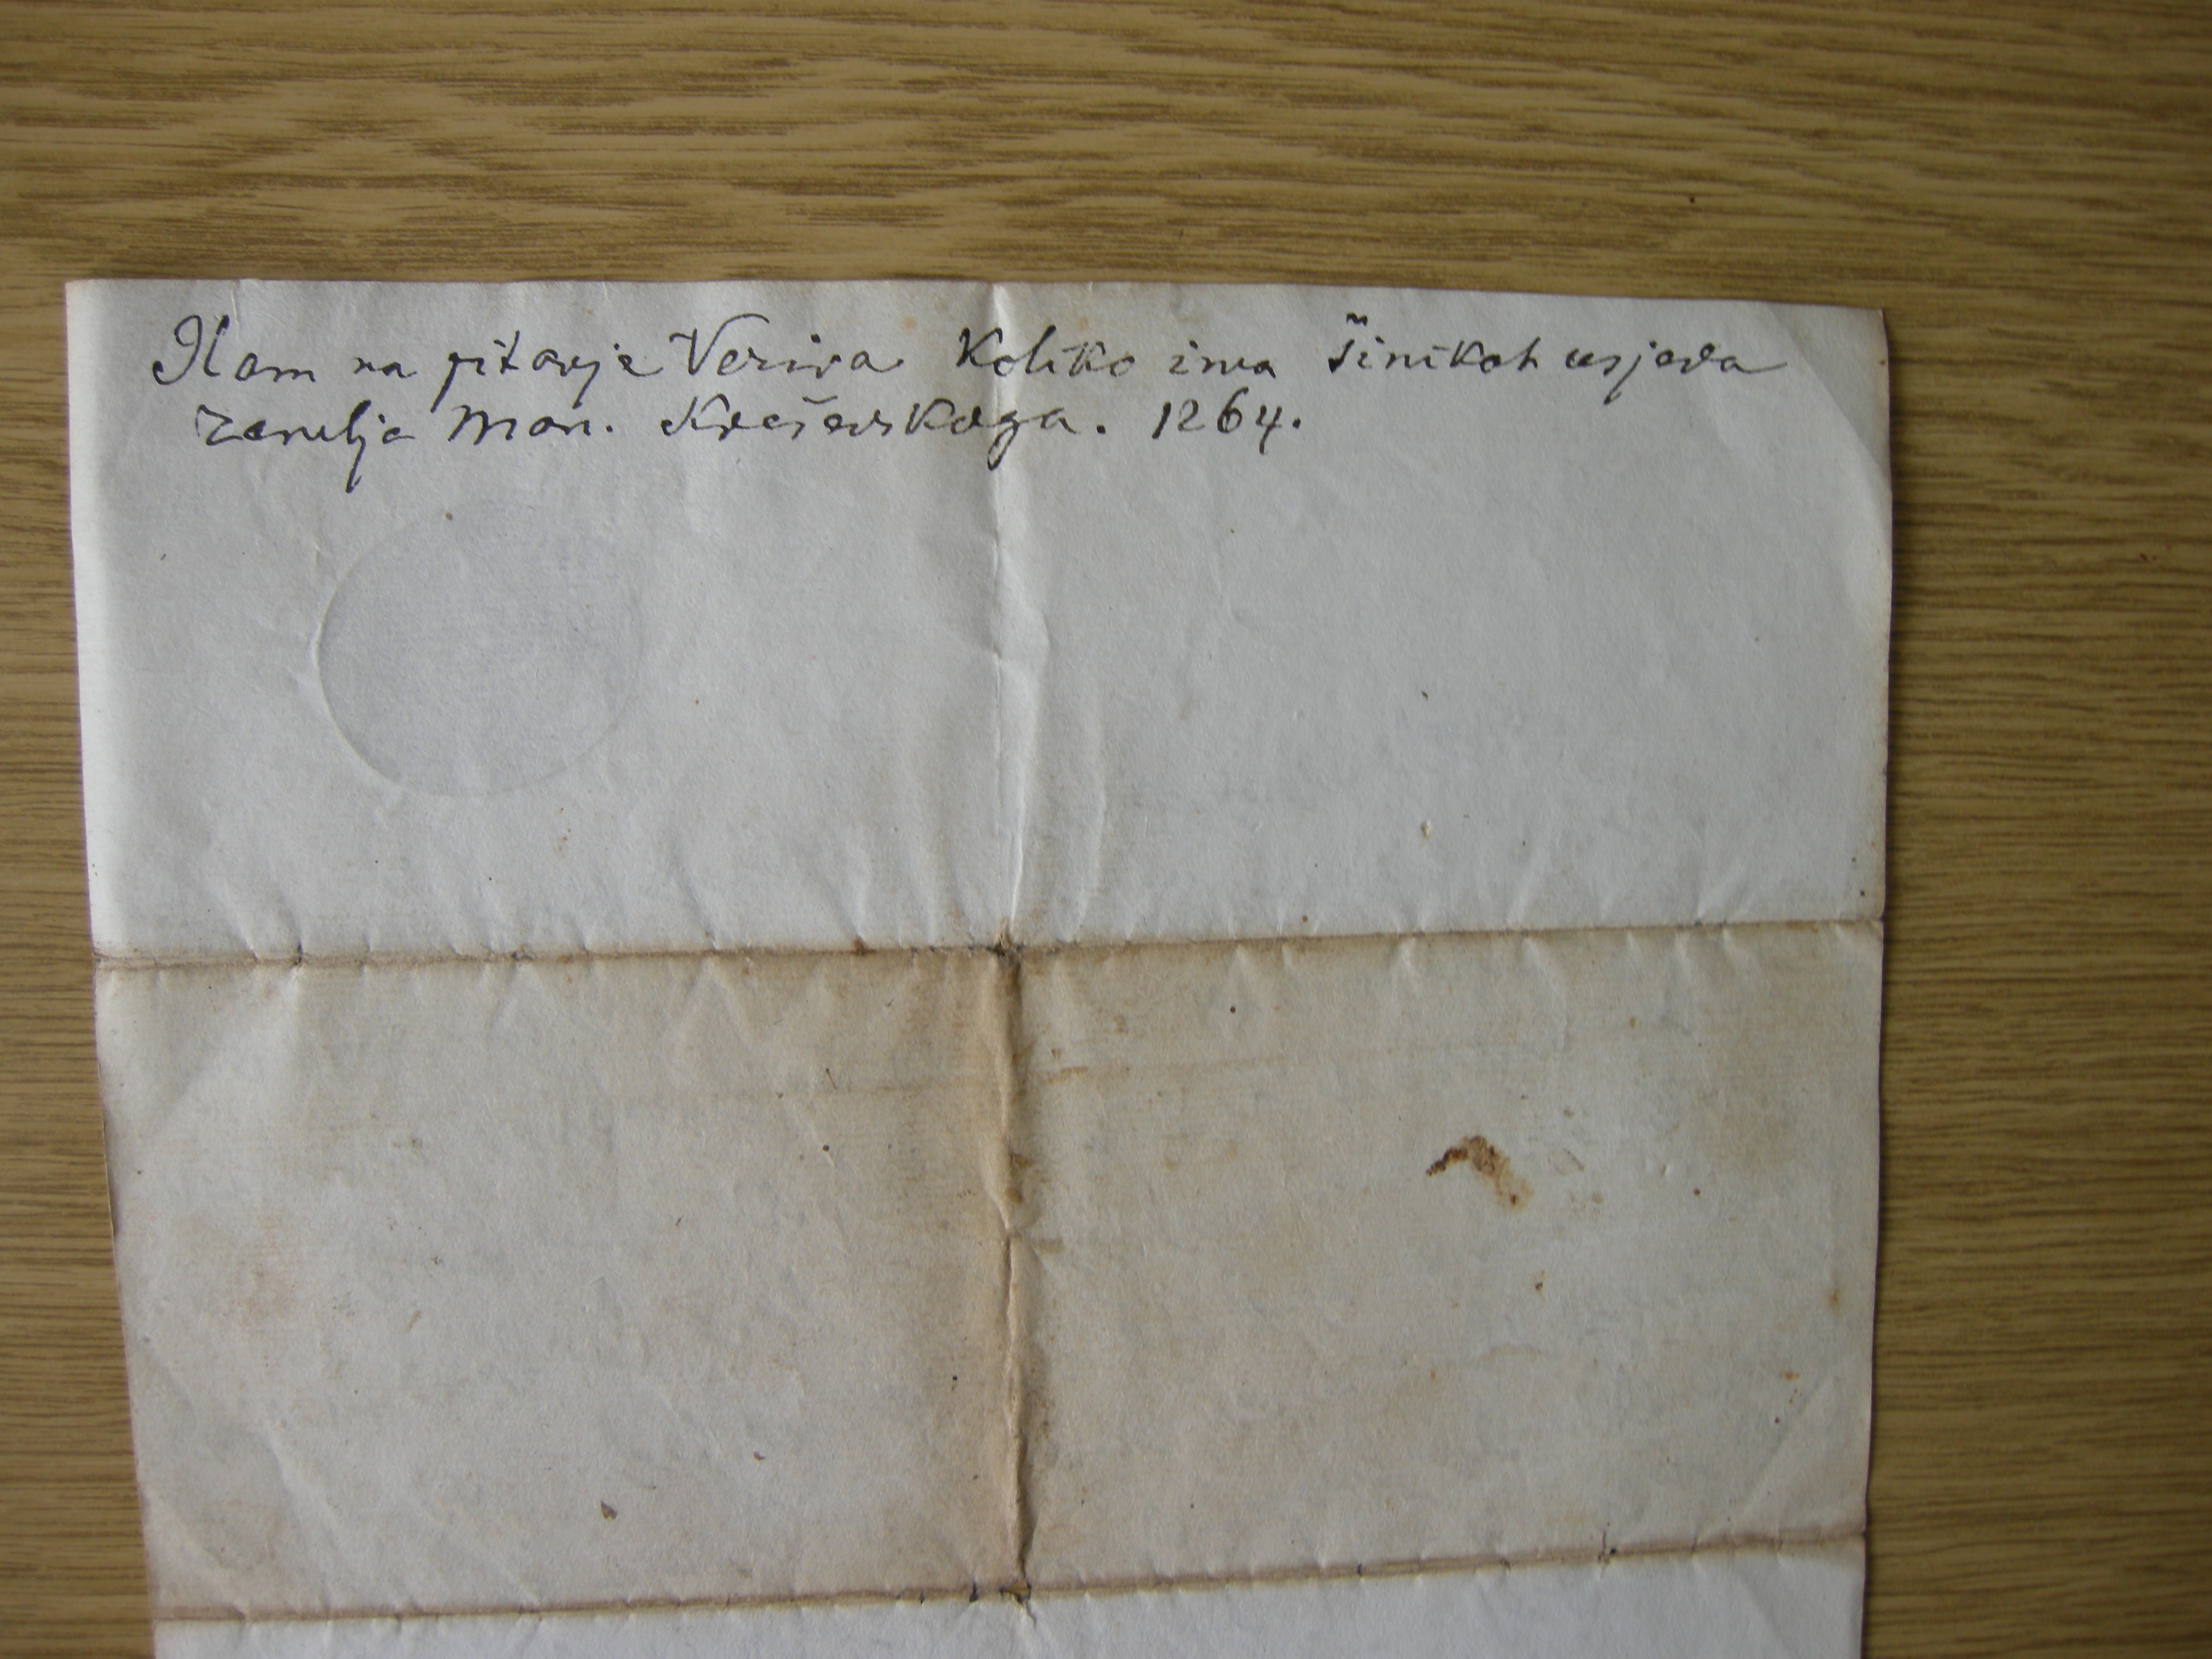 Ilam na pitanje Vezira Koliko ima šinikah usjeva
zemlja Man. Kreševskoga. 1264.